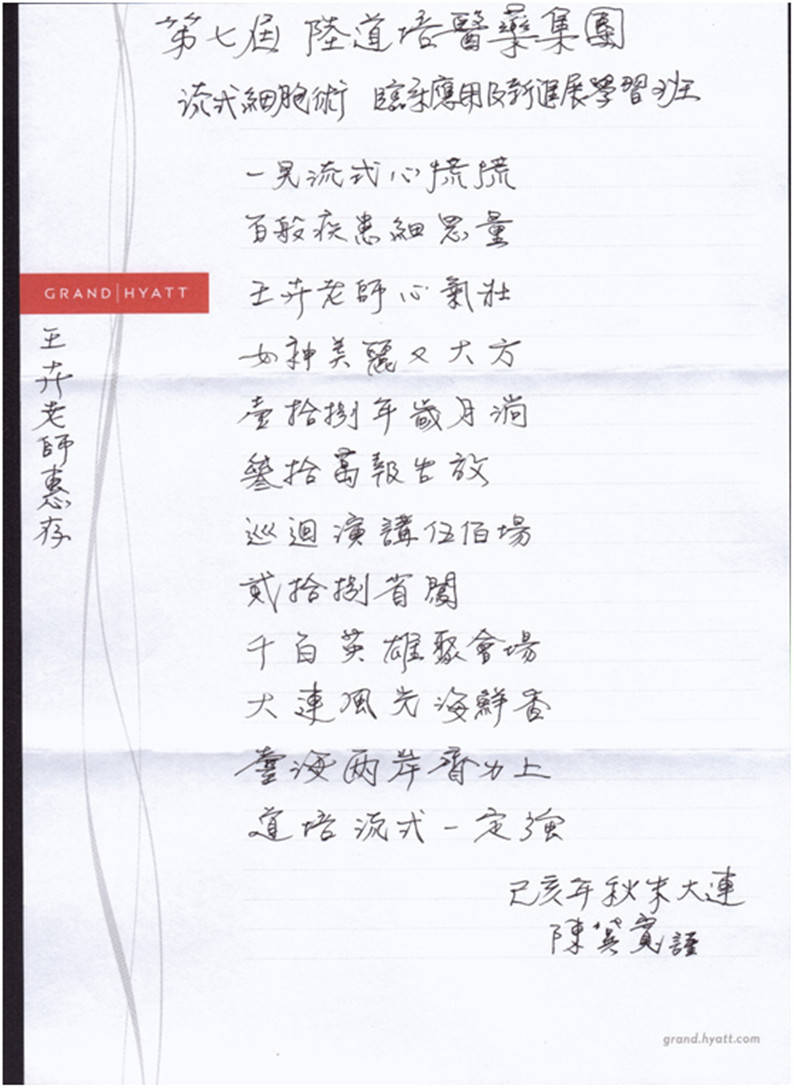 第七屆 陸道培醫藥集團
流式細胞術 臨床應用及新進展學習班
一見流式心慌慌
百般疾患細思量
GRAND|HYATT
王卉老師心氣壯
女神美麗又大方
壹拾捌年歲月淌
叄拾萬報告放
巡迴演講伍佰場
貳拾捌省闖
千百英雄聚會場
大連風光海鮮香
臺海两岸齊力上
道培流式一定強
王卉老師惠存
己亥年秋末大連
陳英寬謹
grand.hyatt.com